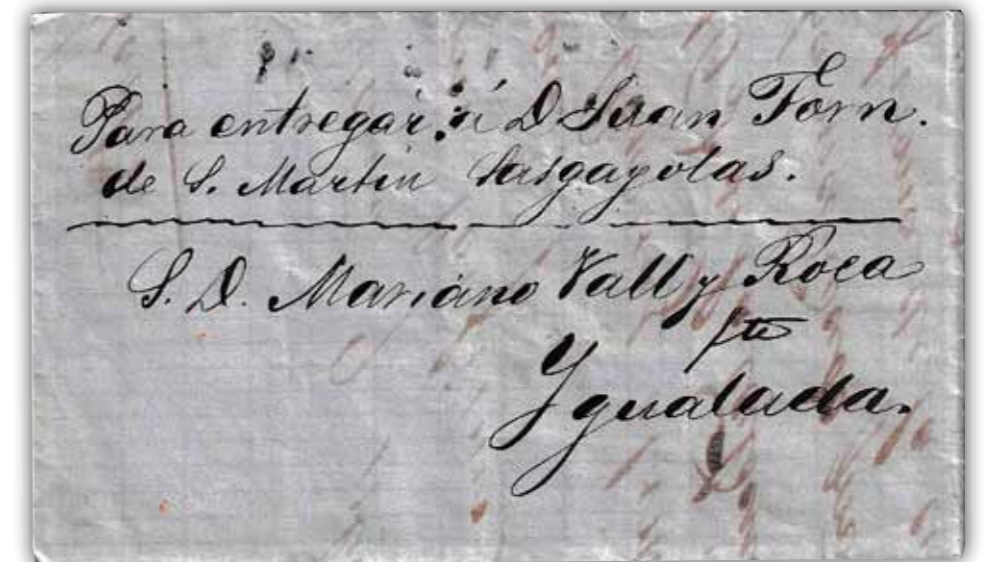 Para entregar á D Juan Forn.
de S. Martin Sasgayolas.
S. D. Mariano Vall y Roca
Ygualada.